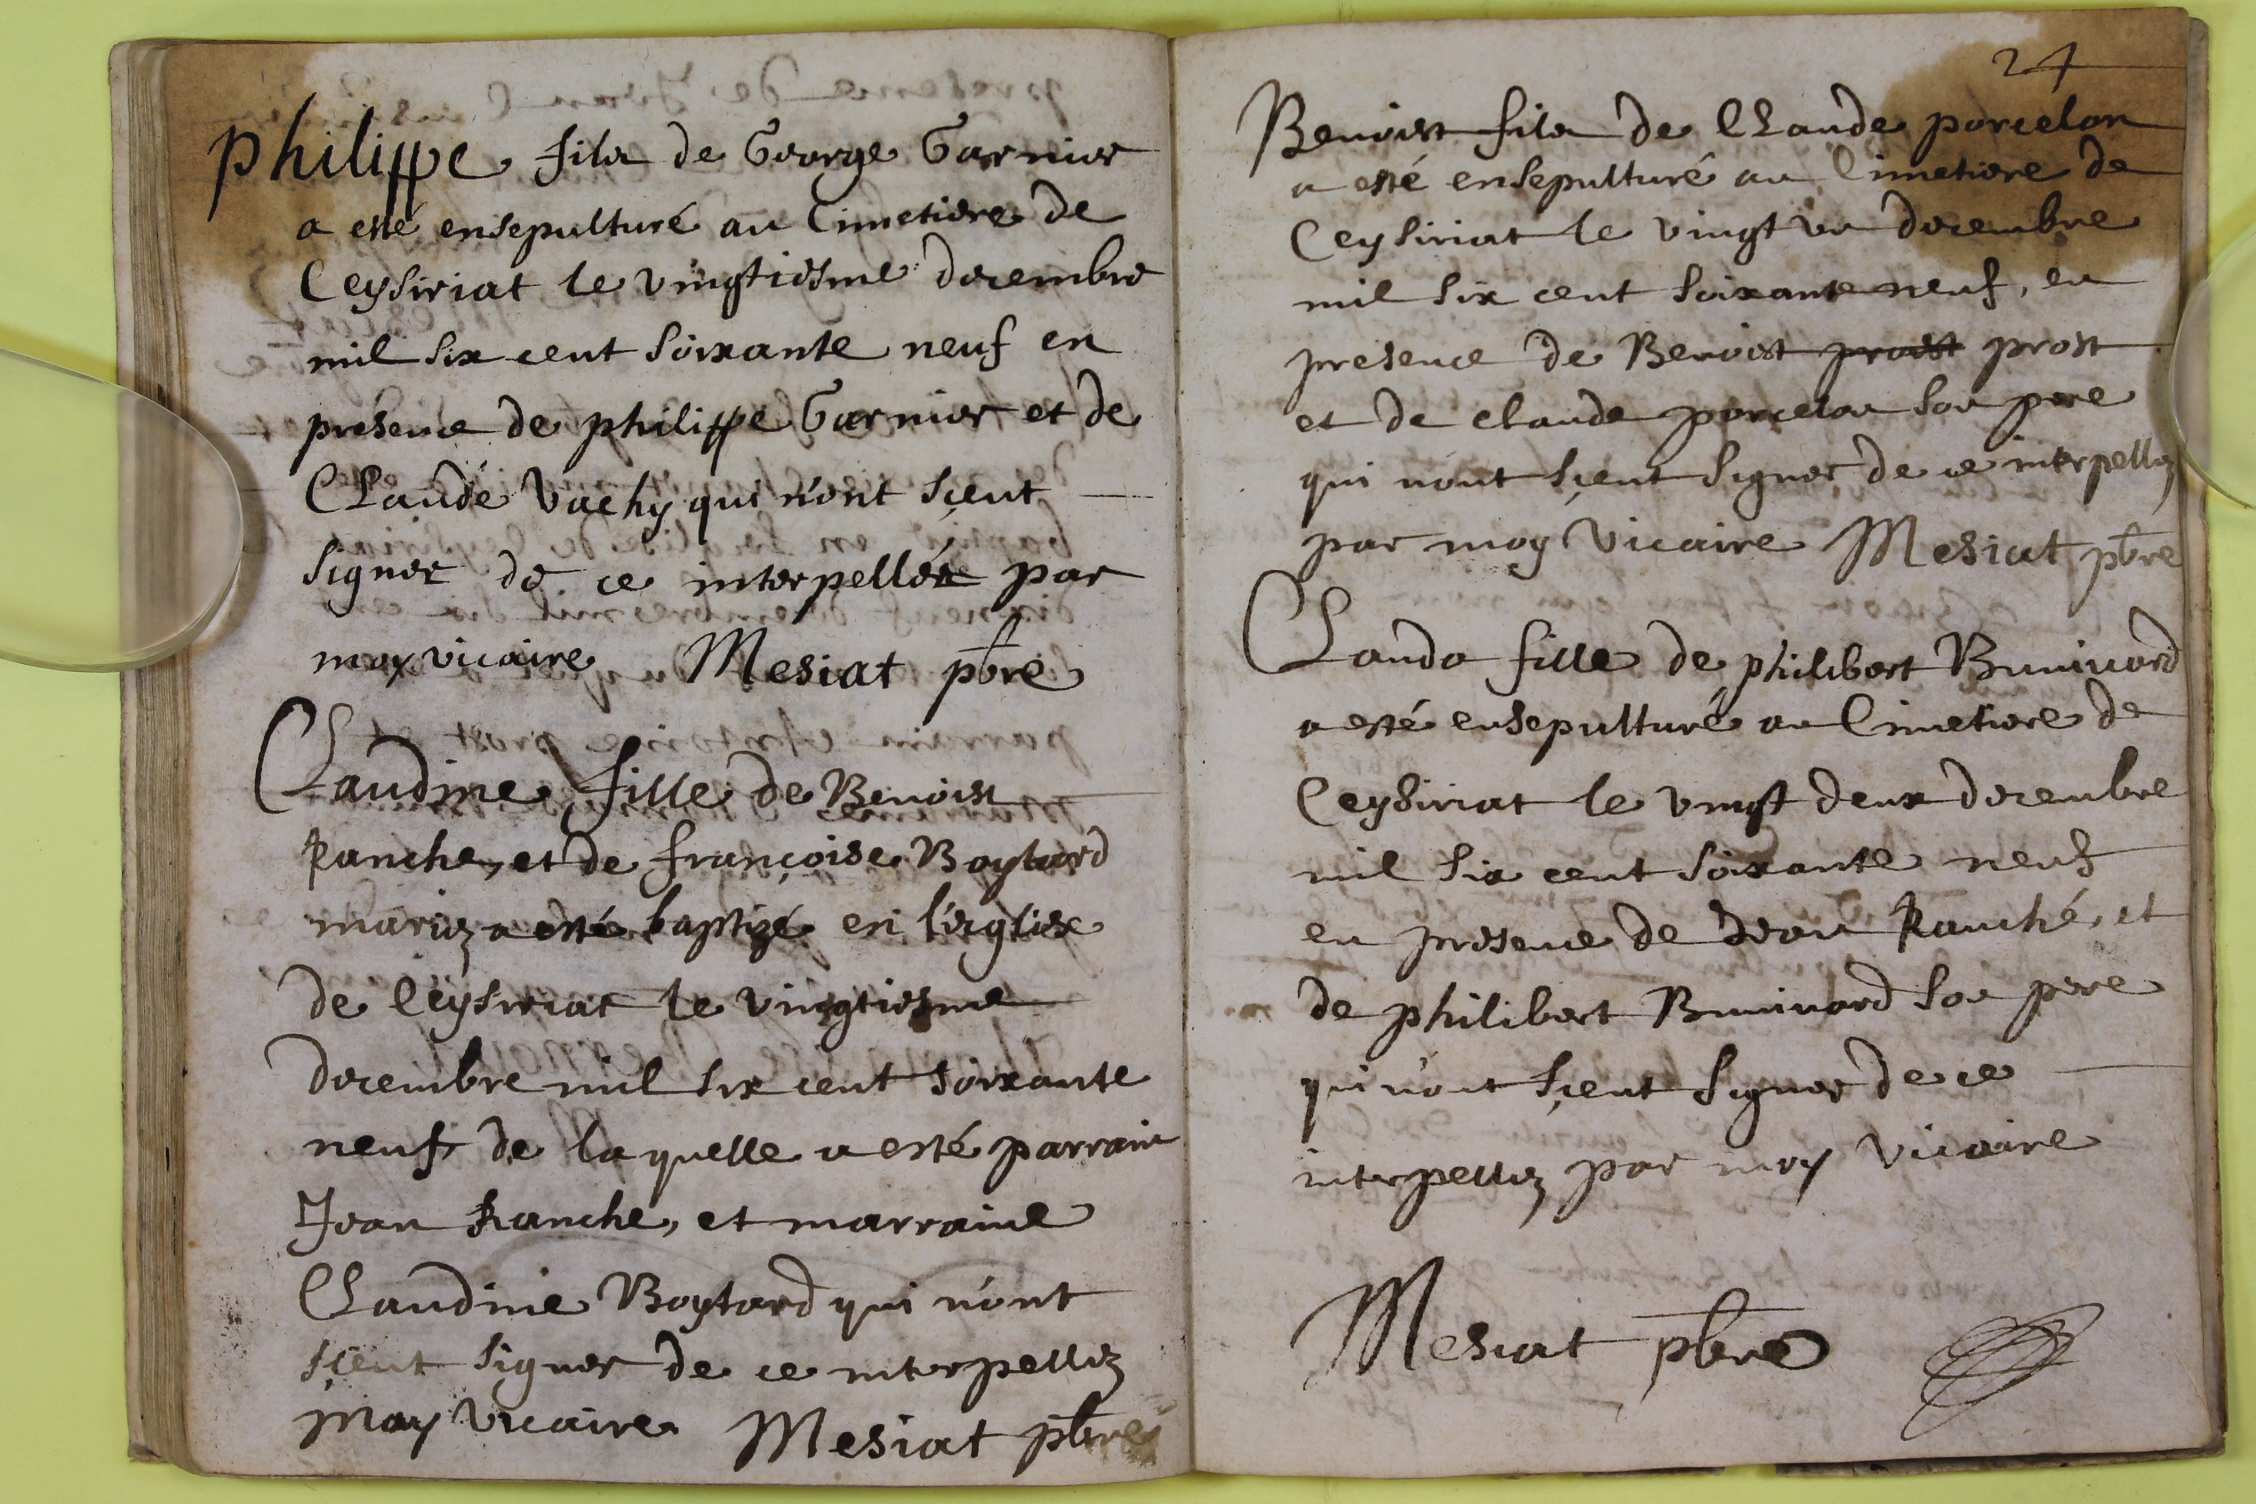 philippe fils de George Garnier
a esté ensepulturé au Cimetiere de
Ceysiriat le vingtiesme decembre
mil six cent soixante neuf en
presence de philippe Garnier et de
Claude Vachy qui n'ont sçeut
signer de ce interpellés par
moy vicaire Mesiat pbre
Claudine fille de Benoist
Ranche, et de françoise Boytard
mariez a esté baptizé en l'esglise
de Ceysiriat le vingtiesme
decembre mil six cent soixante
neuf de laquelle a esté parrain
Jean Ranche, et marraine
Claudine Boytard qui n'ont
sçeut signer de ce interpellez
moy vicaire Mesiat pbre
24
Benoist fils de Claude porcelon
a esté ensepulturé au Cimetiere de
Ceysiriat le vingt un decembre
mil six cent soixante neuf, en
presence de Benoist prost prost
et de claude porcelon son pere
qui n'ont sçeut signer de ce interpellez
par moy Vicaire Mesiat pbre
Clauda fille de philibert
a esté ensepulturé au Cimetiere de
Ceysiriat le vingt deux decembre
mil six cent soixante neuf
en presence de Jean Ranché, et
de philibert son pere
qui n'ont sçeut signer de ce
interpellez par moy Vicaire
Mesiat pbre